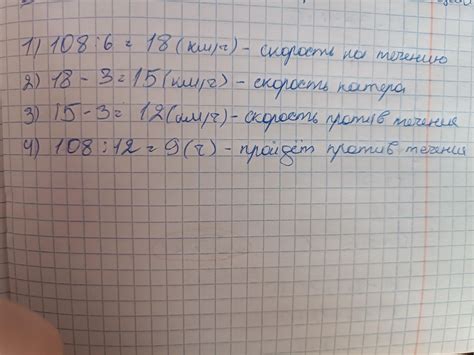 1) 108 : 6 = 18 (км/ч) - скорость по течению
2) 18 - 3 = 15 (км/ч) - скорость катера
3) 15 - 3 = 12 (км/ч) - скорость против течения
4) 108 : 12 = 9 (ч) - пройдёт против течения